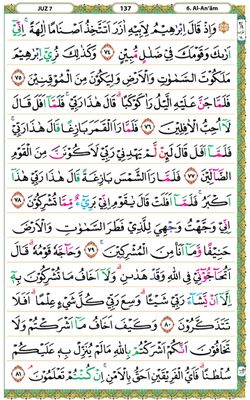 JUZ 7 137 6. Al-An'ām
وَإِذْ قَالَ إِبْرَٰهِيمُ لِأَبِيهِ ءَازَرَ أَتَتَّخِذُ أَصْنَامًا ءَالِهَةً إِنِّىٓ
أَرَىٰكَ وَقَوْمَكَ فِى ضَلَٰلٍ مُّبِينٍ ٧٤ وَكَذَٰلِكَ نُرِىٓ إِبْرَٰهِيمَ
مَلَكُوتَ السَّمَٰوَٰتِ وَالْأَرْضِ وَلِيَكُونَ مِنَ الْمُوقِنِينَ ٧٥
فَلَمَّا جَنَّ عَلَيْهِ الَّيْلُ رَءَا كَوْكَبًا قَالَ هَٰذَا رَبِّى فَلَمَّآ أَفَلَ قَالَ
لَآ أُحِبُّ الْءَافِلِينَ ٧٦ فَلَمَّا رَءَا الْقَمَرَ بَازِغًا قَالَ هَٰذَا رَبِّى
فَلَمَّآ أَفَلَ قَالَ لَئِن لَّمْ يَهْدِنِى رَبِّى لَأَكُونَنَّ مِنَ الْقَوْمِ
الضَّآلِّينَ ٧٧ فَلَمَّا رَءَا الشَّمْسَ بَازِغَةً قَالَ هَٰذَا رَبِّى هَٰذَآ
أَكْبَرُ فَلَمَّآ أَفَلَتْ قَالَ يَٰقَوْمِ إِنِّى بَرِىٓءٌ مِّمَّا تُشْرِكُونَ ٧٨
إِنِّى وَجَّهْتُ وَجْهِىَ لِلَّذِى فَطَرَ السَّمَٰوَٰتِ وَالْأَرْضَ
حَنِيفًا وَمَآ أَنَا۠ مِنَ الْمُشْرِكِينَ ٧٩ وَحَآجَّهُۥ قَوْمُهُۥ قَالَ
أَتُحَٰٓجُّوٓنِّى فِى اللَّهِ وَقَدْ هَدَىٰنِ وَلَآ أَخَافُ مَا تُشْرِكُونَ بِهِۦٓ
إِلَّآ أَن يَشَآءَ رَبِّى شَيْـًٔا وَسِعَ رَبِّى كُلَّ شَىْءٍ عِلْمًا أَفَلَا
تَتَذَكَّرُونَ ٨٠ وَكَيْفَ أَخَافُ مَآ أَشْرَكْتُمْ وَلَا
تَخَافُونَ أَنَّكُمْ أَشْرَكْتُم بِاللَّهِ مَا لَمْ يُنَزِّلْ بِهِۦ عَلَيْكُمْ
سُلْطَٰنًا فَأَىُّ الْفَرِيقَيْنِ أَحَقُّ بِالْأَمْنِ إِن كُنتُمْ تَعْلَمُونَ ٨١